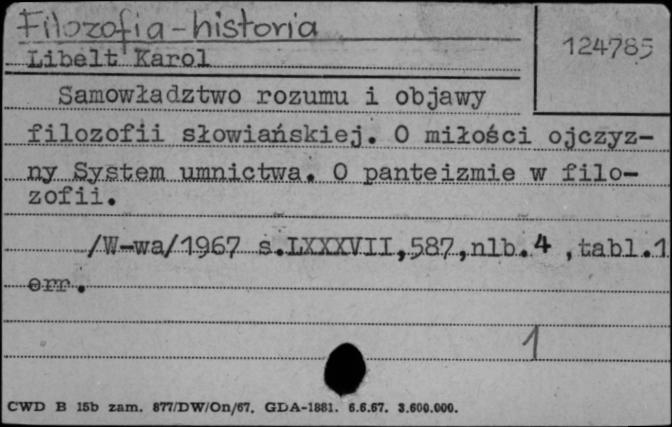 Filozofia-historia
124785
Libelt Karol
Samowładztwo rozumu i objawy
filozofii słowiańskiej. O miłości ojczyz-
ny System umnictwa. O panteizmie w filo-
zofii.
/W-wa/1967 s.LXXXVII,587,nlb.4 ,tabl.1
err.
1
CWD B 15b zam. 877/DW/On/67. GDA-1881. 6.6.67. 3.600.000.